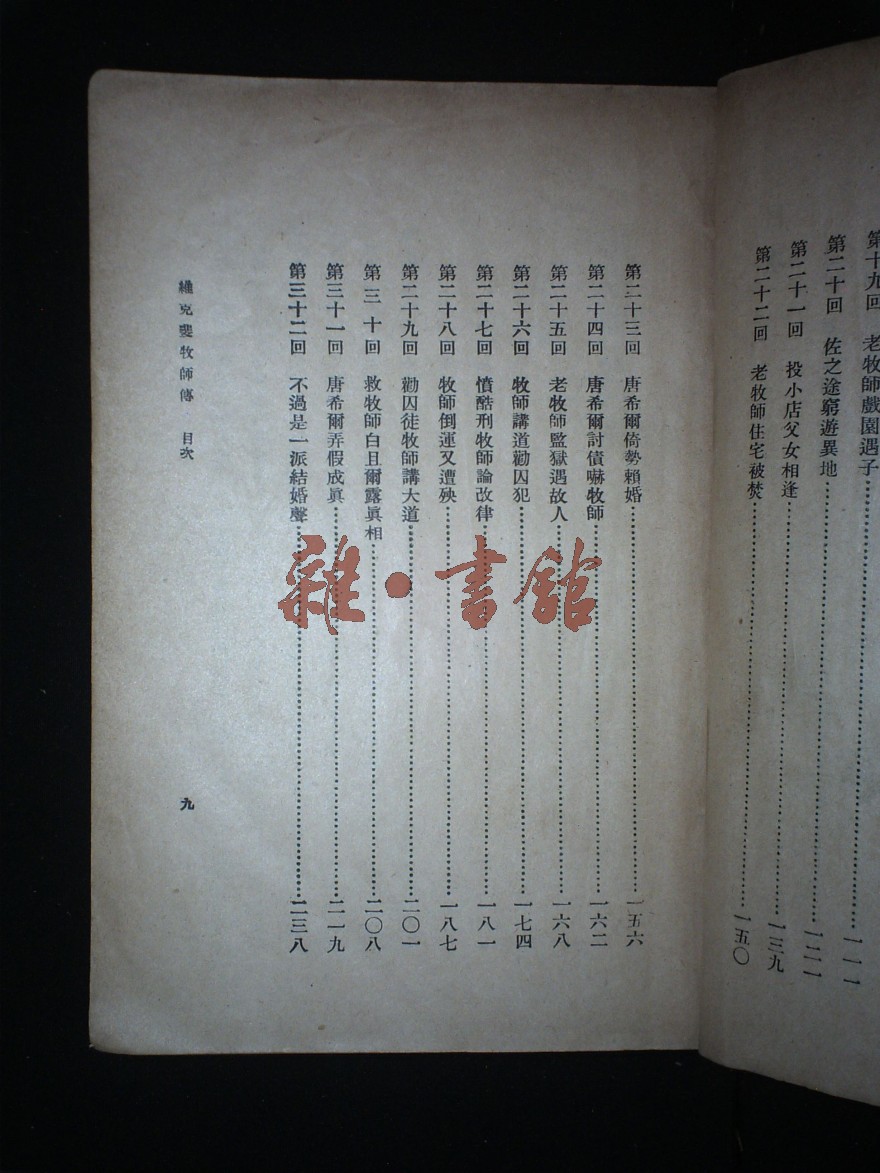 第十九回　老牧師戲園遇子……一一一
第二十回　佐之途窮遊異地……一二一
第二十一回　投小店父女相逢……一三九
第二十二回　老牧師住宅被焚……一五〇
第二十三回　唐希爾倚勢賴婚……一五六
第二十四回　唐希爾討債嚇牧師……一六二
第二十五回　老牧師監獄遇故人……一六八
第二十六回　牧師講道勸囚犯……一七四
第二十七回　憤酷刑牧師論改律……一八一
第二十八回　牧師倒運又遭殃……一八七
第二十九回　勸囚徒牧師講大道……二〇一
第三十回　救牧師白且爾露眞相……二〇八
第三十一回　唐希爾弄假成眞……二一九
第三十二回　不過是一派結婚聲……二三八
維克斐牧師傳　目次
九
雜·書館